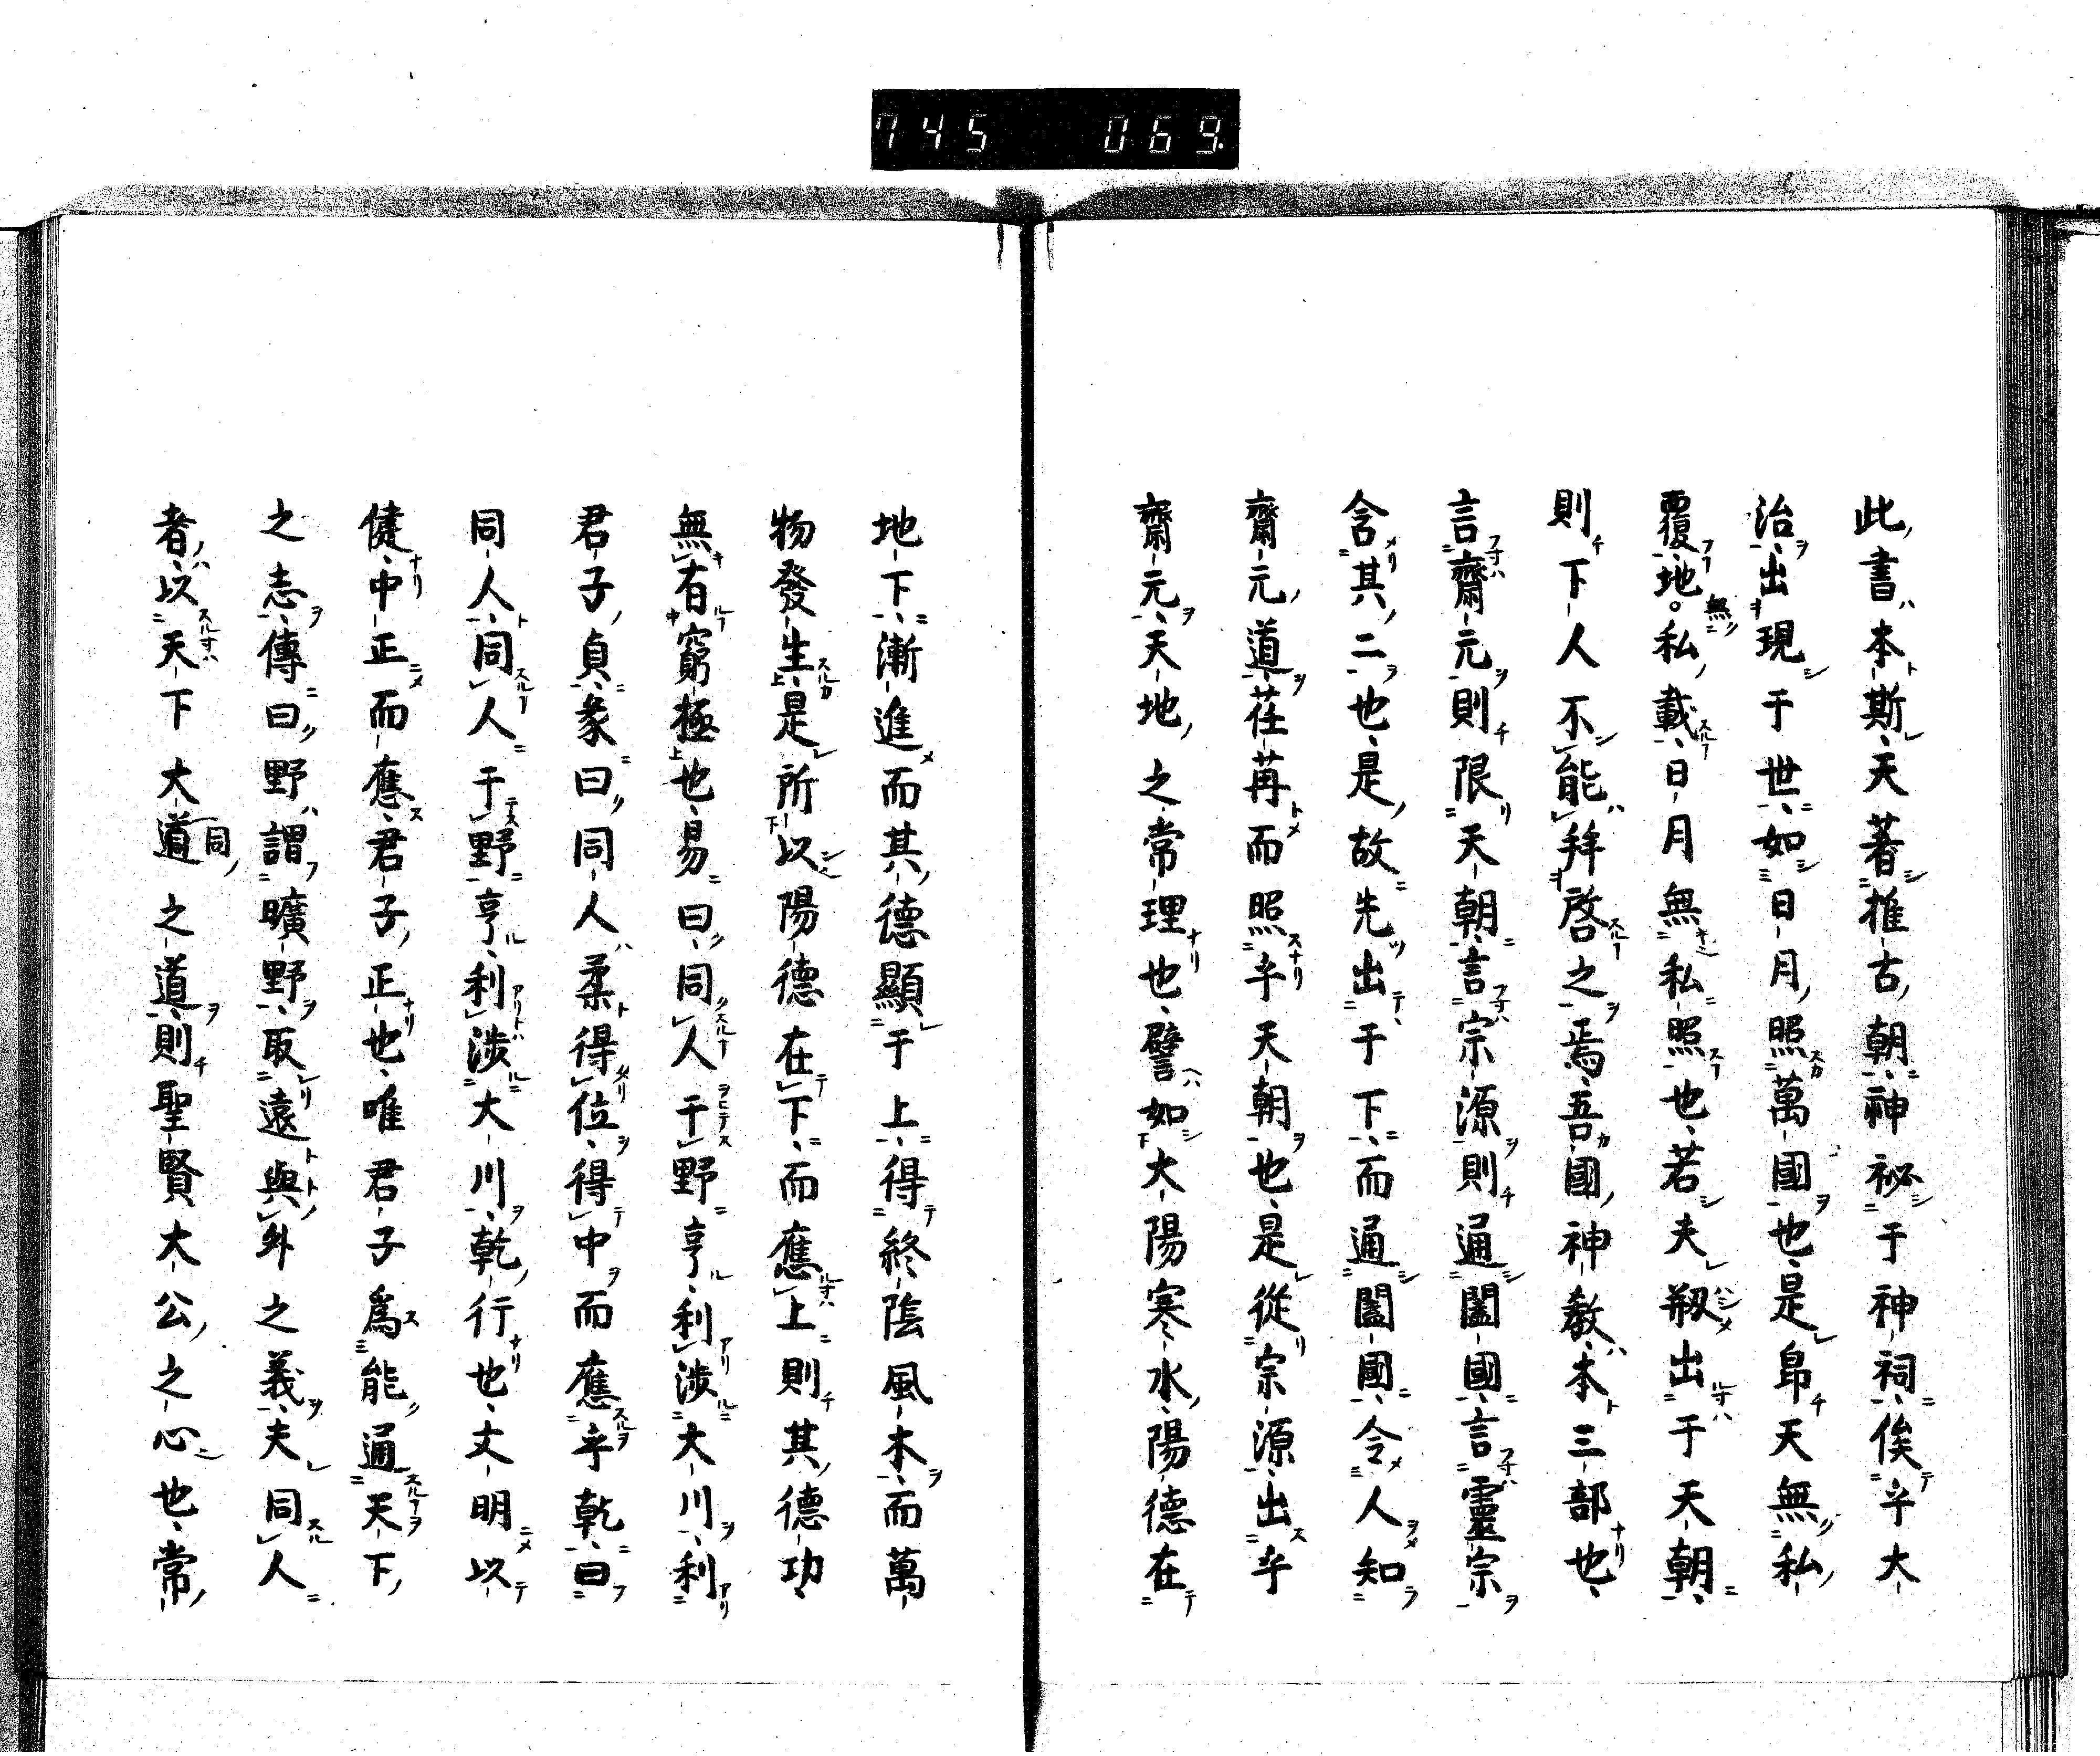 745 069
此書本斯天著推古朝神祕于神祠俟乎大
治出現于世如日月照萬國也是帠天無私
覆地無私載日月無私照也若夫剏出于天朝
則下人不能拜啓之焉吾國神教本三部也
言齋元則限天朝言宗源則通闔國言靈宗
含其二也是故先出于下而通闔國令人知
齋元道荏苒而照乎天朝也是從宗源出乎
齋元天地之常理也譬如大陽寒水陽德在
地下漸進而其德顯于上得終陰風木而萬
物發生是所以陽德在下而應上則其德功
無有窮極也易曰同人于野亨利涉大川利
君子貞彖曰同人柔得位得中而應乎乾曰
同人同人于野亨利涉大川乾行也文明以
健中正而應君子正也唯君子爲能通天下
之志傳曰野謂曠野取遠與外之義夫同人
者以天下大同之道則聖賢大公之心也常